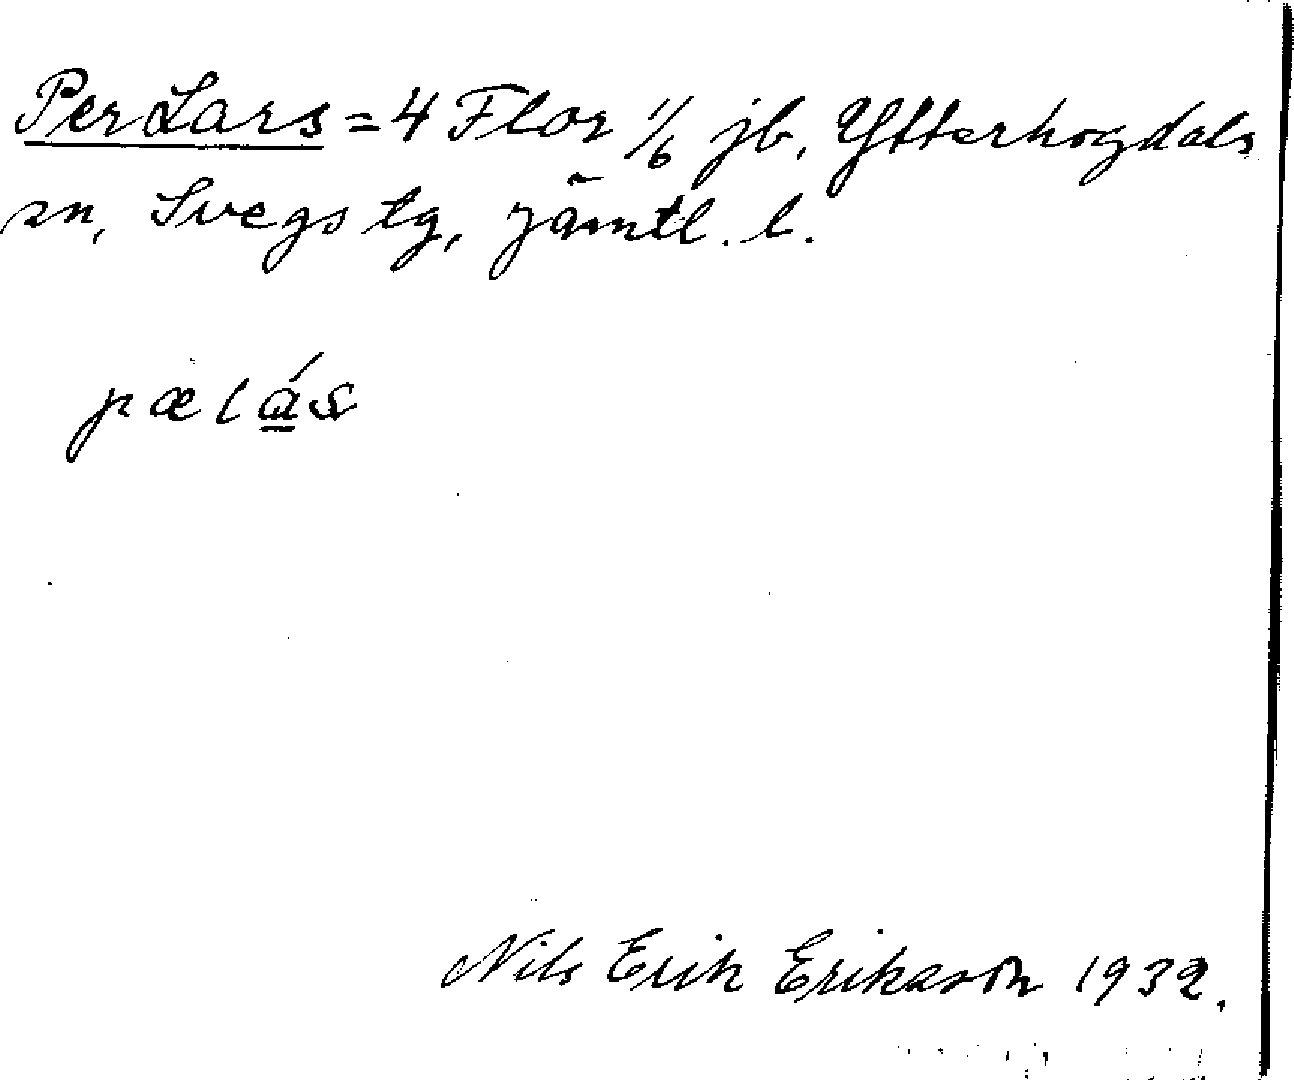 Per Lars = 4 Flor 1/6 jb, Ytterhogdals
sn, Svegs tg, Jämtl. l.
pælás
Nils Erik Erikson 1932.